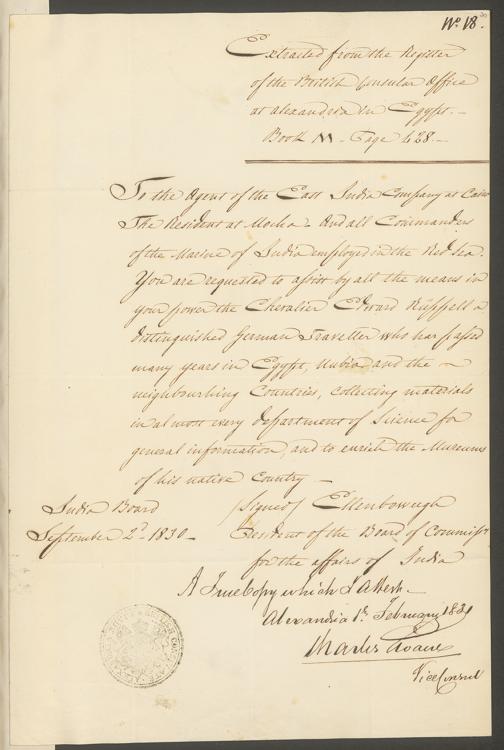 No. 18.
Extracted from the Register
of the British Consular Office
at Alexandria in Egypt. —
Book M - Page 428 —
To the Agent of the East India Company at Cairo
The Resident at Mocha - And all Commanders
of the Marine of India employed in the Red Sea.
You are requested to assist by all the means in
your power the Chevalier Edward Rüppell a
distinguished German Traveller who has passed
many years in Egypt, Nubia and the ~
neighbourhing Countries, collecting materials
in almost every department of Science for
general information, and to enrich the Museums
of his native Country —
India Board
September 2d. 1830 -
/signed/ Ellenborough
President of the Board of Commissrs
for the affairs of India
A True Copy which I attest -
Alexandria 1st February 1831
Charles
Vice Consul